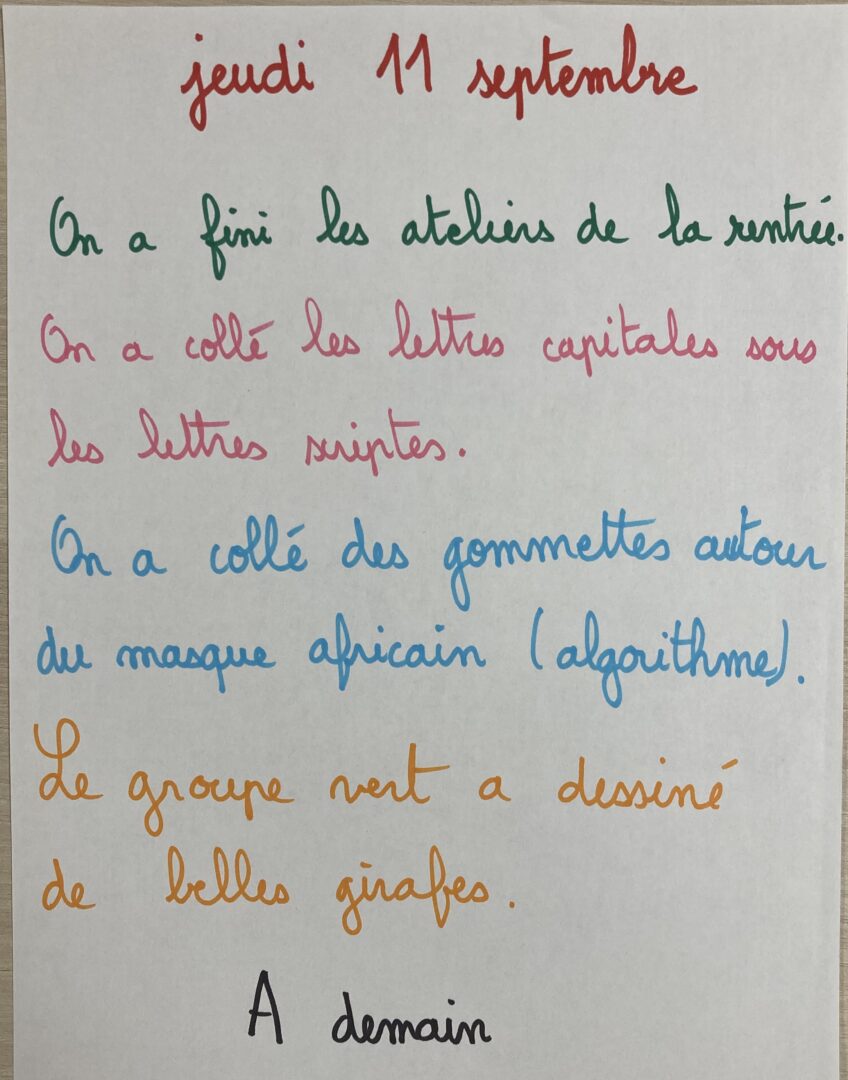 jeudi 11 septembre
On a fini les ateliers de la rentrée.
On a collé les lettres capitales sous
les lettres scriptes.
On a collé des gommettes autour
du masque africain (algorithme).
Le groupe vert a dessiné
de belles girafes.
A demain